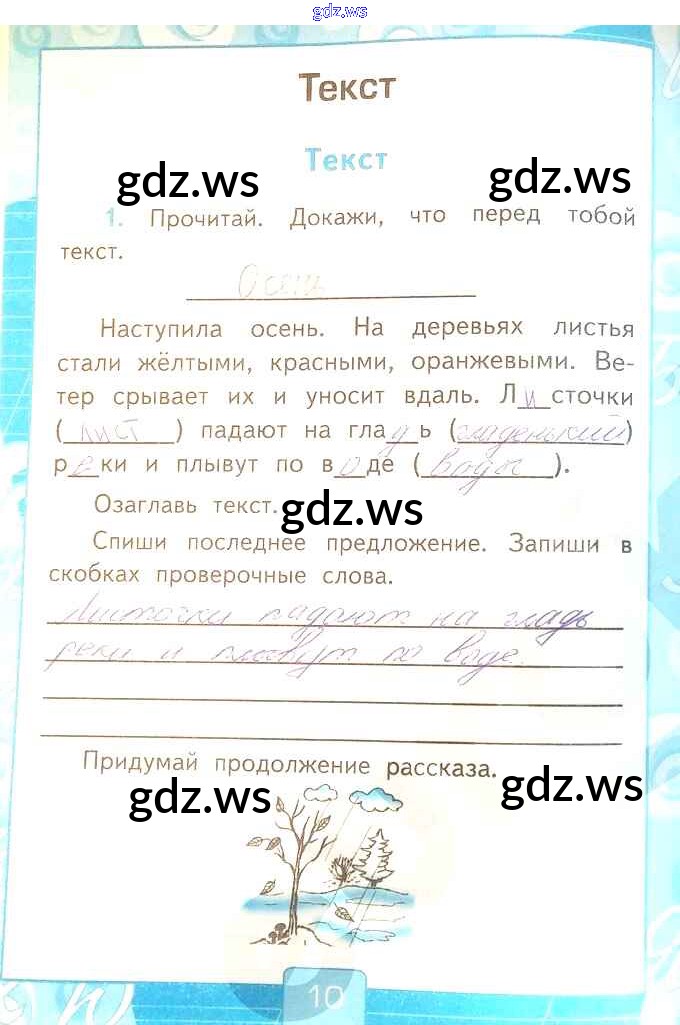 gdz.ws
Текст
Текст
gdz.ws
gdz.ws
1. Прочитай. Докажи, что перед тобой
текст.
Осень
Наступила осень. На деревьях листья
стали жёлтыми, красными, оранжевыми. Ве-
тер срывает их и уносит вдаль. Листочки
(лист) падают на гладь (гладенький)
реки и плывут по воде (воды).
Озаглавь текст.
gdz.ws
Спиши последнее предложение. Запиши в
скобках проверочные слова.
Листочки падают на гладь
реки и плывут по воде.
Придумай продолжение рассказа.
gdz.ws
gdz.ws
10